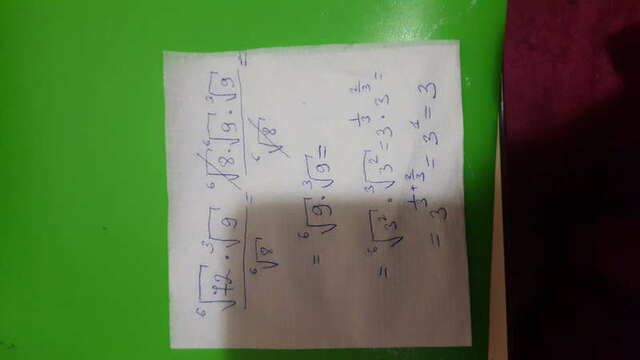 ⁶√72 · ³√9 / ⁶√8 = ⁶√8 · ⁶√9 · ³√9 / ⁶√8 =
= ⁶√9 · ³√9 =
= ⁶√3² · ³√3² = 3^(1/3) · 3^(2/3) =
= 3^(1/3 + 2/3) = 3¹ = 3